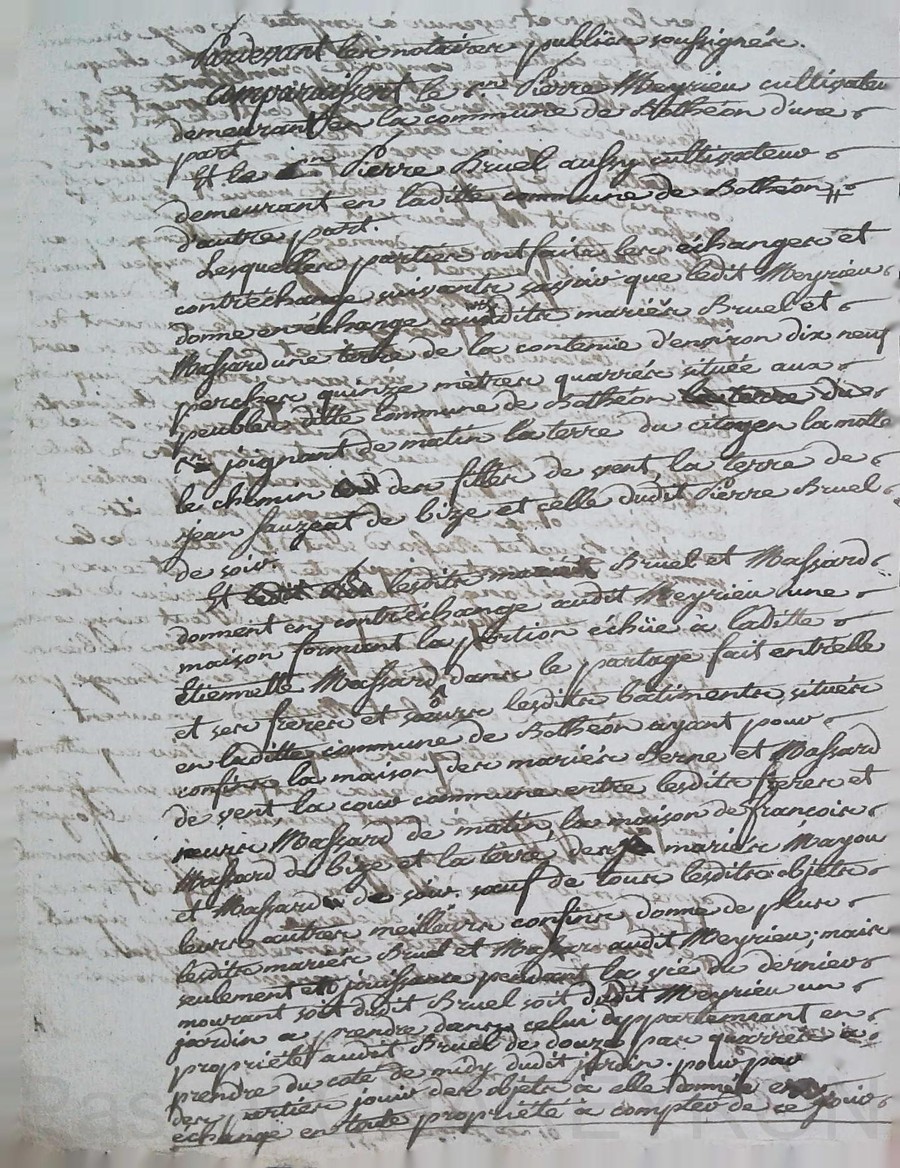 Pardevant les notaires publics soussignés.
Comparaissent le sr Pierre Meyrieu cultivateur
demeurant en la commune de Bothéon d'une
part
Et le sr Pierre Bruel aussy cultivateur
demeurant en laditte commune de Bothéon
d'autre part.
Lesquelles parties ont faits les échanges et
contréchange suivants savoir que ledit Meyrieu
donne en échange auxdits mariés Bruel et
Massard une terre de la contenue d'environ dix neuf
perches quinze mètres quarrés située aux
peubles ditte commune de Bothéon
joignant de matin la terre du citoyen la motte
le chemin des filles de vent la terre de
jean sauzeat de bize et celle dudit Pierre Bruel
de soir.
Et lesdits Bruel et Massard
donnent en contréchange audit Meyrieu une
maison formant la portion échüe a laditte
Etiennette Massard dans le partage fait entrelle
et ses freres et sœurs lesdits bâtiments situés
en laditte commune de Bothéon ayant pour
confins la maison des mariés Berne et Massard
de vent, la cour commune entre lesdits freres et
sœurs Massard de matin, la maison de françois
Massard de bize et la terre des mariés Mayou
et Massard de soir, sauf de tous lesdits objets
leurs autres meilleurs confins donne de plus
lesdits mariés Bruel et Massard audit Meyrieu; mais
seulement jouissance pendant la vie du dernier
mourant soit dudit Bruel soit dudit Meyrieu un
jardin a prendre dans celui appartenant en
propriété audit Bruel de douze pas quarrés a
prendre du coté de midy dudit jardin. pour par
des parties jouir des objets a elle donnés en
échange en toute propriété a compter de ce jour